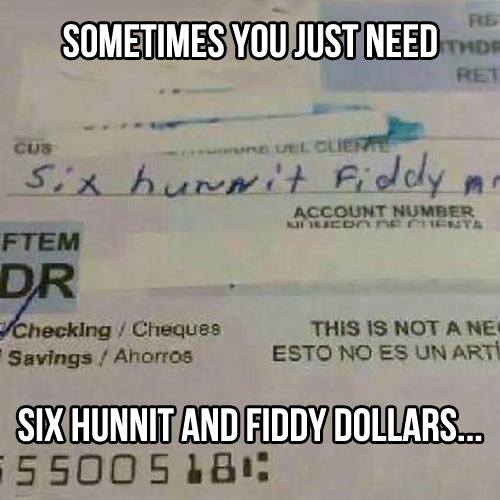 SOMETIMES YOU JUST NEED
CUS
DEL CLIENTE
Six hunnit Fiddy
ACCOUNT NUMBER
NUMERO DE CUENTA
FTEM
DR
Checking / Cheques
Savings / Ahorros
THIS IS NOT A NE
ESTO NO ES UN ARTÍ
SIX HUNNIT AND FIDDY DOLLARS...
5500518